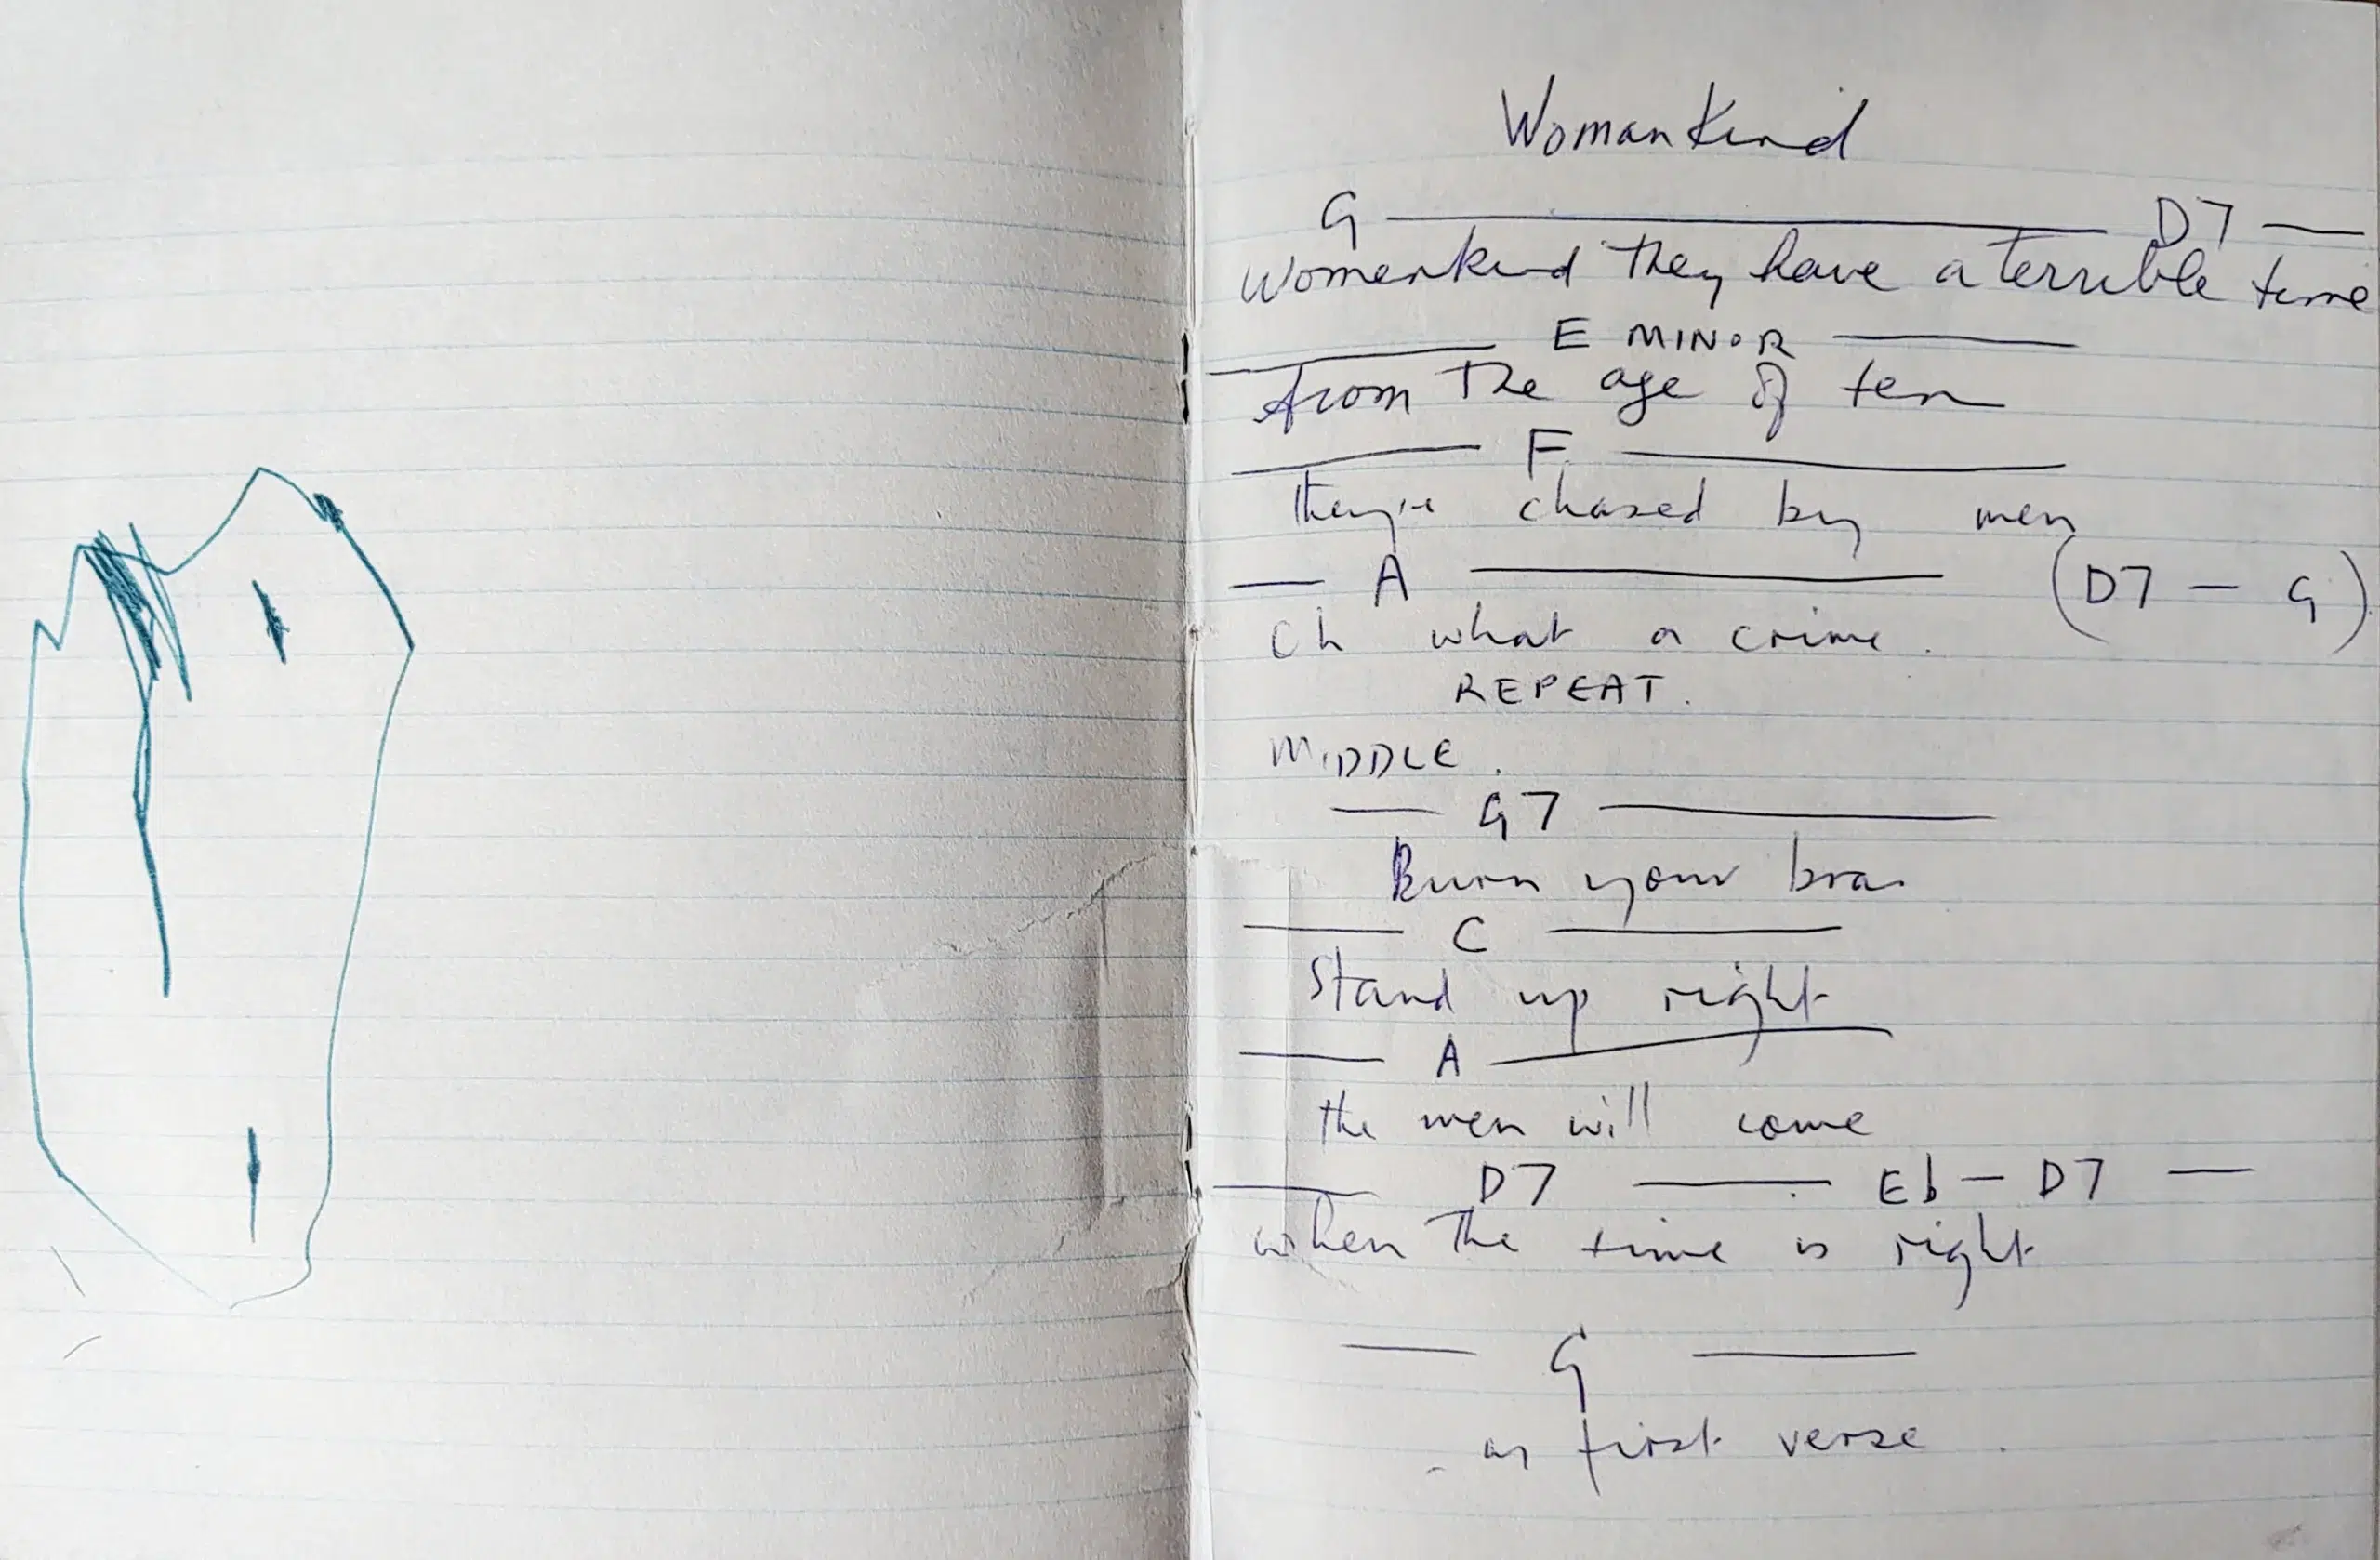 Woman Kind
G — D7 —
Womenkind they have a terrible time
— E MINOR —
from the age of ten
— F —
they're chased by men
— A — (D7 — G)
Oh what a crime.
REPEAT.
MIDDLE.
— G7 —
Burn your bra
— C —
Stand up right
— A —
the men will come
— D7 — Eb — D7 —
when the time is right
— G —
- as first verse.